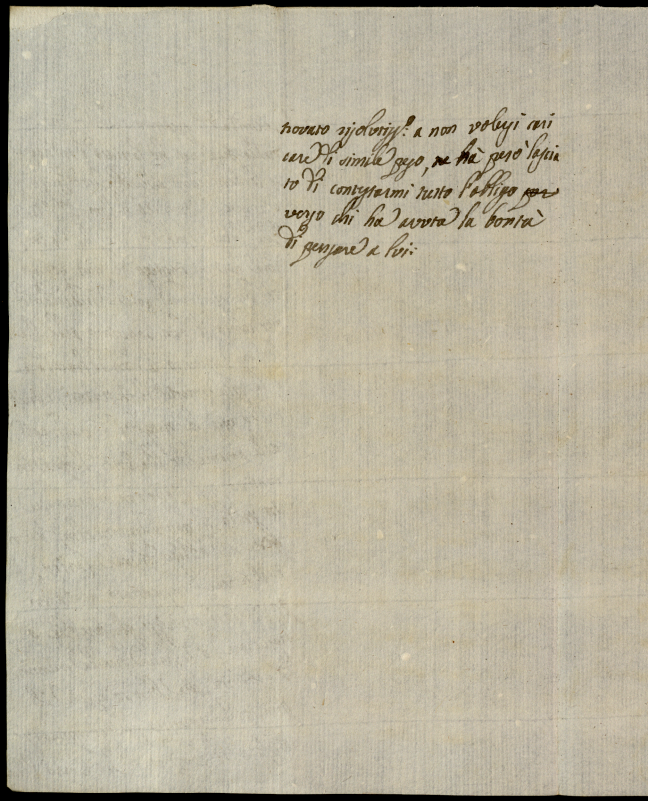 trovato risolutiss.o a non volersi cari
care di simile peso, ne hà però lascia
to di contestarmi tutto l'obligo per
verso chi ha avuta la bontà
di pensare a lui: